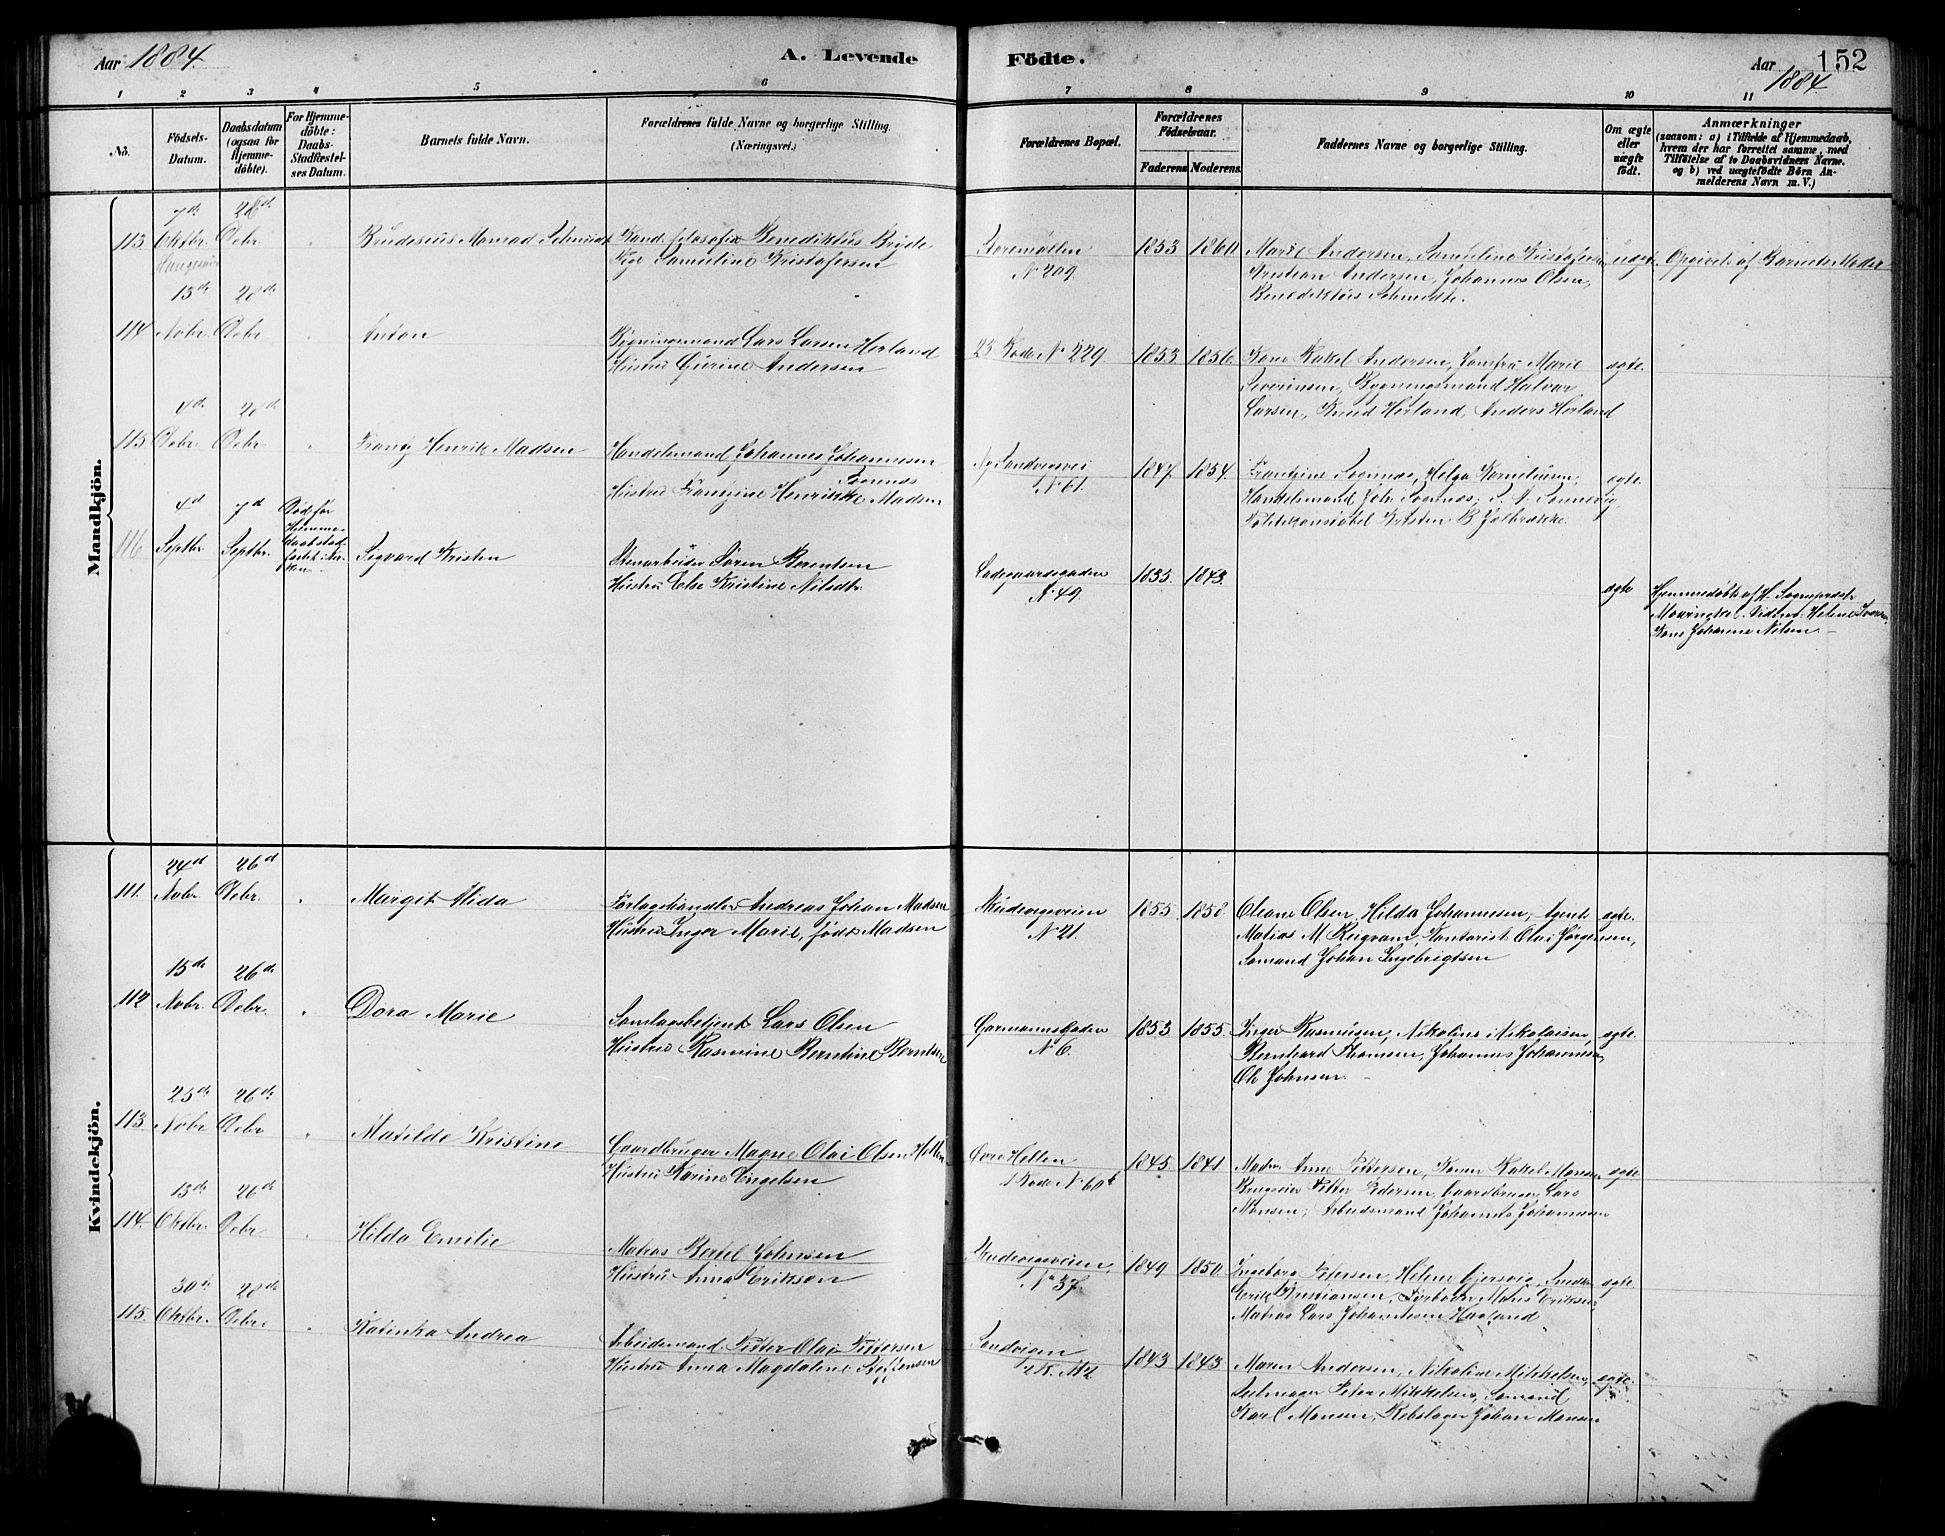 Aar 1884
A. Levende
Födte.
Aar 1884
152
1 2 3 4 5 6 7 8 9 10 11
No.
Födsels-
Datum.
Daabsdatum
(ogsaa for
Hjemme-
döbte).
For Hjemme-
döbte:
Daabs-
Stadfæstel-
ses Datum.
Barnets fulde Navn.
Forældrenes fulde Navne og borgerlige Stilling.
(Næringsvei.)
Forældrenes Bopæl.
Forældrenes
Födselsaar.
Faderens Moderens.
Faddernes Navne og borgerlige Stilling.
Om ægte
eller
uægte
födt.
Anmærkninger
(saasom: a) i Tilfælde af Hjemmedaab,
hvem der har forrettet samme, med
Tilföielse af to Daabsvidners Navne,
og b) ved uægtefödte Börn An-
melderens Navn m. V.)
Mandkjön.
113
7de Oktbr.
28de Debr.
Monrad Schmidt
Kand. filosofie Benediktus Bryde
Pige Samueline Kristofersen
Storemøllen
N 209.
1853 1860
Marie Andersen, Samueline Kristofersen
Kristian Andersen, Johannes Olsen,
Benediktus Schmidt.
uægte
Opgivet af Barnets Moder
114
13de Nobr.
28de Debr.
Anton
Bygningsmand Lars Larsen Herland
Hustru Gurine Andersen
23 Rode N 229
1853 1856
Kone Rakel Andersen, Jomfru Marie
Severinsen, Bygningsmand Halvar
Larsen, Knud Herland, Anders Herland
ægte.
115
4de Debr.
28de Debr.
Frantz Henrik Madsen
Handelsmand Johannes Johannesen
Hustru Frantzine Henrikke Madsen
Ny Sandvigsvei
N 61.
1847. 1854.
Frantzine Sognnæs, Helga Korneliusen,
Handelsmand Joh. Sognnæs,
Politikonstabel Kristen B. Jølbrække.
ægte
116
4d Septbr.
7d Septbr.
Død før
Hjemme-
daabstad-
fæstet i Kir-
ken
Sigvard Kristen
Stenarbeider Søren Berentsen
Hustru Else Kristine Nilsdtr.
Ladegaardsgaden
N 49.
1835. 1843.
ægte
Hjemmedøbt af
Vidner: Helene
Kone Johanne Nilsen.
Kvindekjön.
111.
24d Nobr.
26d Debr.
Margit Alida
Forlagshandler Andreas Johan Madsen
Hustru Inger Marie, født Madsen
Skudevigsveien
N 21.
1855. 1858.
Oleane Olsen, Hilda Johannesen, Agent
Matias M. Kontorist Olai Jørgensen,
Sømand Johan Ingebrigtsen
ægte.
112
15de Nobr.
26de Debr.
Dora Marie
Samlagsbetjent Lars Olsen
Hustru Rasmine Berntine Berntsen
Gørmannsgaden
N 6.
1853 1855.
Inger Rasmusen, Nikoline Nikolaisen,
Bernhard Thomsen, Johannes Johannesen,
Ole Johnsen.
ægte.
113.
25de Nobr.
26de Debr
Matilde Kristine
Gaardbruger Magne Olai Olsen Helten
Hustru Karine Engelsen
Øvre Helten
1 Rode N 60b
1845 1841
Madm. Anne Pettersen, Karen Rakel Monsen
Petter Pedersen, Gaardbruger Lars
Monsen, Arbeidsmand Johannes Johannesen
ægte
114.
13de Oktbr.
26de Debr
Hilda Emilie
Matros Bertel Johnsen
Hustru Anna Erikson
Skudevigsveien,
No 37.
1849 1850
Ingeborg Petersen, Helene Gjersvig, Snedker
Erik Kristiansen, Mons Eriksen
Matros Lars Johannesen Haaland
ægte
115.
30de Oktbr.
28de Debr.
Katinka Andrea
Arbeidsmand Petter Olai Pettersen
Hustru Anna Magdalene Steffensen
Sandvigen
2 R. N 2
1843 1843
Maren Andersen, Nikoline Mikkelsen,
Seilmager Peter Mikkelsen, Sømand
Karl Monsen, Rebslager Johan Monsen
ægte.